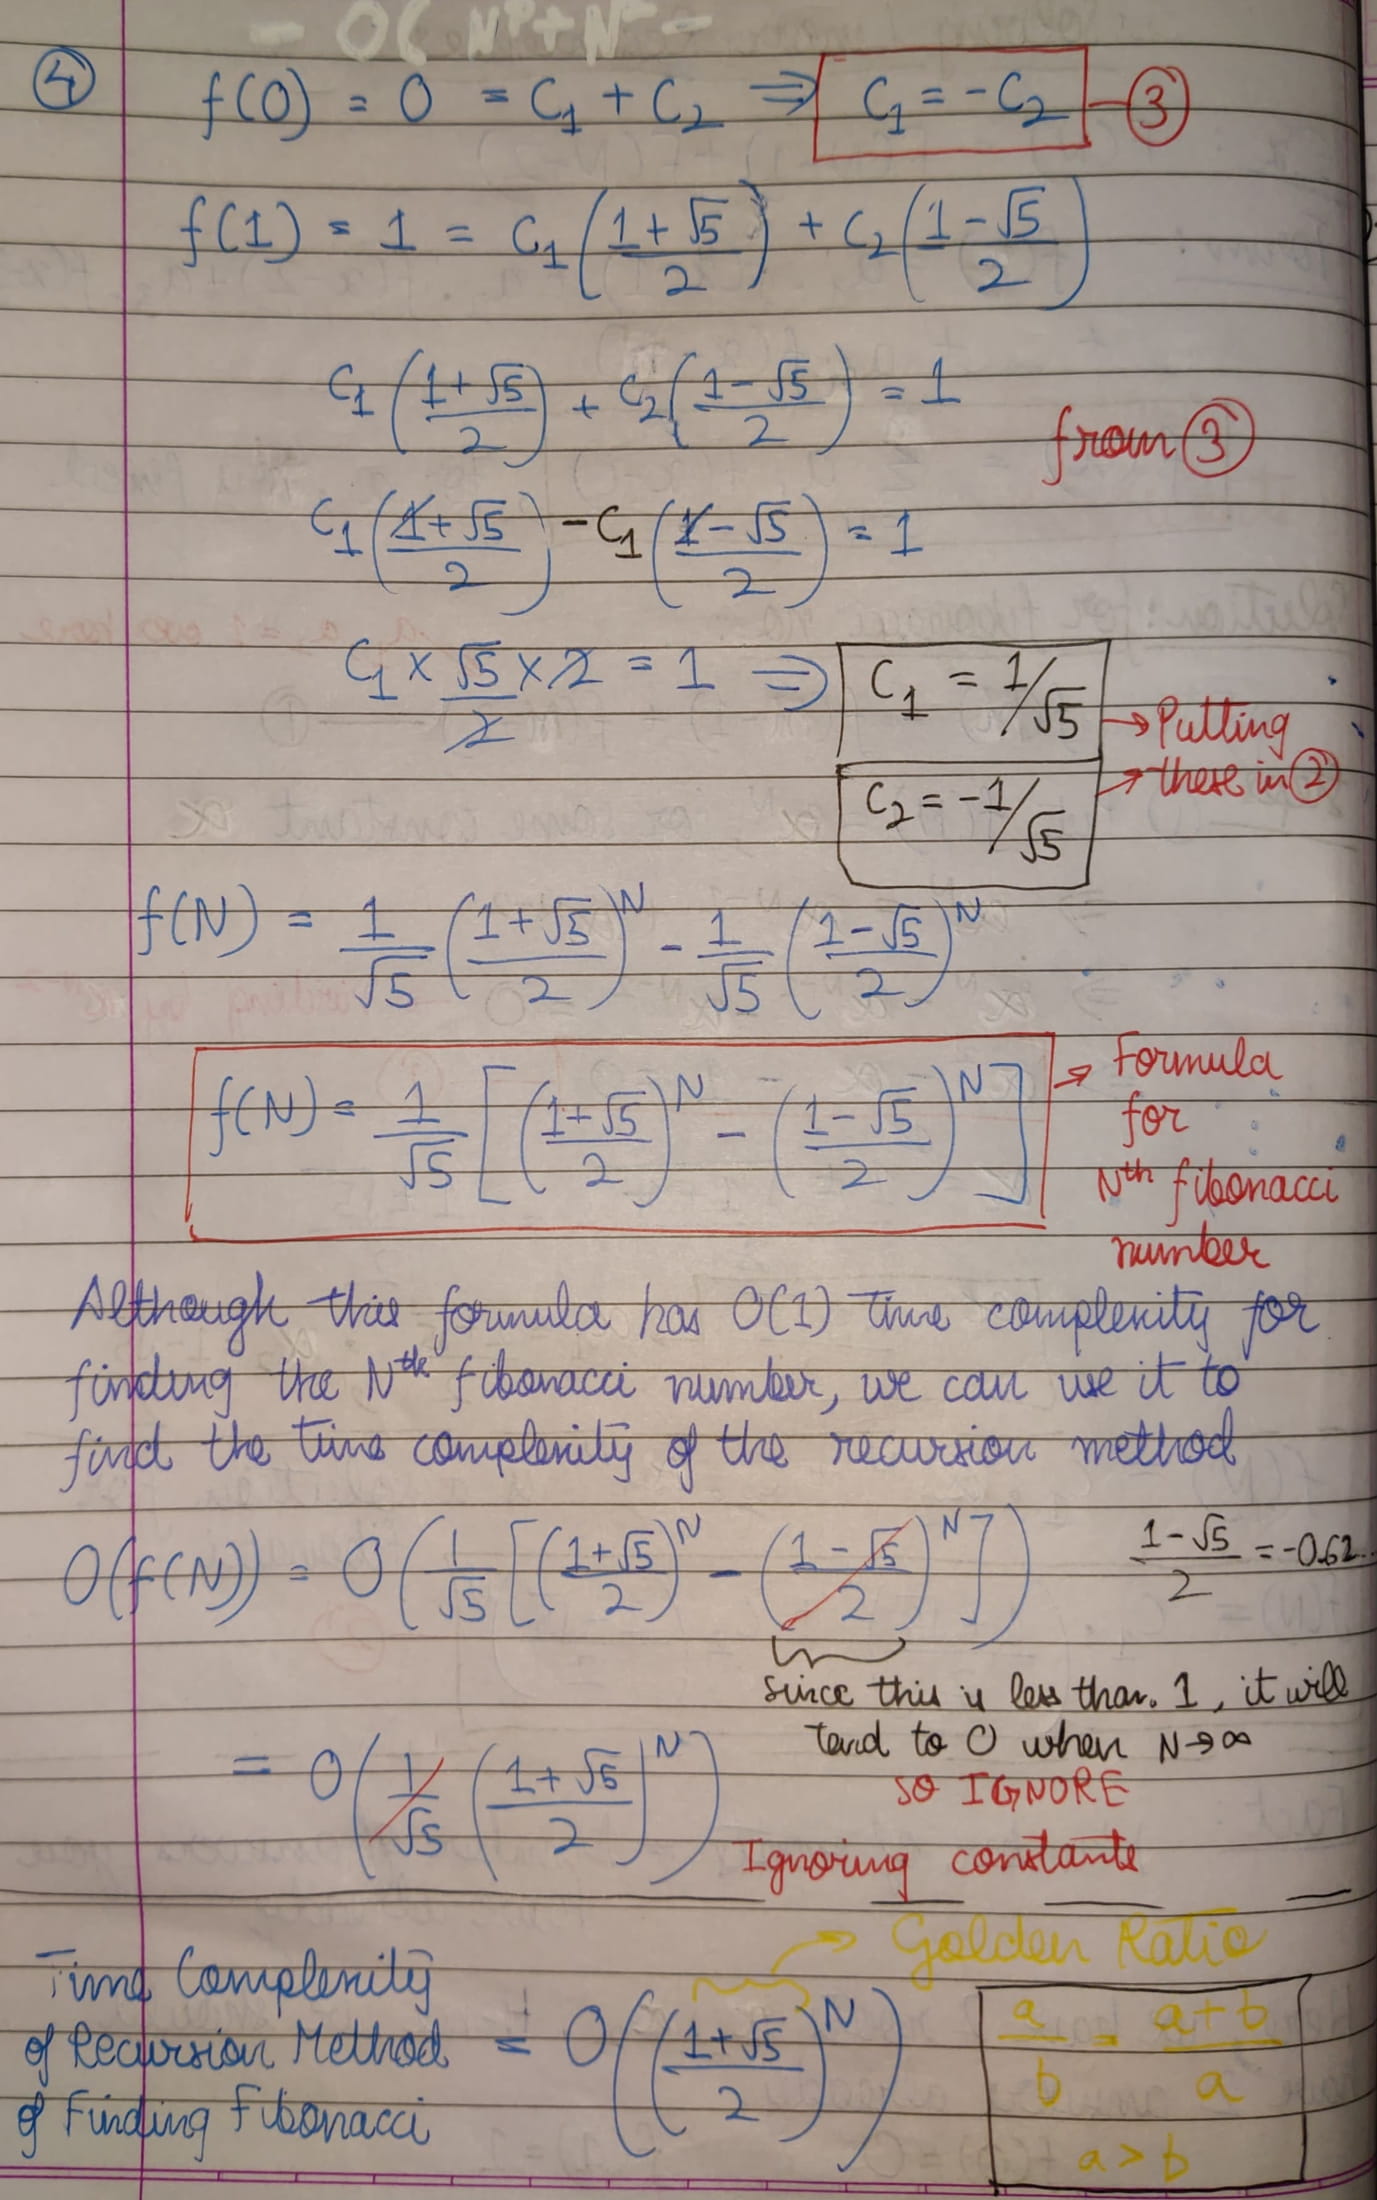 - O( N^p + N^
④ f(0) = 0 = C₁ + C₂ ⇒ C₁ = -C₂ - ③
f(1) = 1 = C₁ ((1+√5)/2) + C₂ ((1-√5)/2)
C₁ ((1+√5)/2) + C₂ ((1-√5)/2) = 1
from ③
C₁ ((1+√5)/2) - C₁ ((1-√5)/2) = 1
C₁ × √5/2 × 2 = 1 ⇒ C₁ = 1/√5
→ Putting
C₂ = -1/√5
→ these in ②
f(N) = 1/√5 ((1+√5)/2)^N - 1/√5 ((1-√5)/2)^N
f(N) = 1/√5 [((1+√5)/2)^N - ((1-√5)/2)^N]
→ Formula
for
Nth fibonacci
number
Although this formula has O(1) time complexity for
finding the Nth fibonacci number, we can use it to
find the time complexity of the recursion method
O(f(N)) = O(1/√5 [((1+√5)/2)^N - ((1-√5)/2)^N])
(1-√5)/2 = -0.62..
since this is less than. 1, it will
tend to 0 when N→∞
so IGNORE
= O(1/√5 ((1+√5)/2)^N)
Ignoring constants
→ Golden Ratio
Time Complexity
of Recursion Method = O(((1+√5)/2)^N)
of Finding Fibonacci
a/b = (a+b)/a
a > b